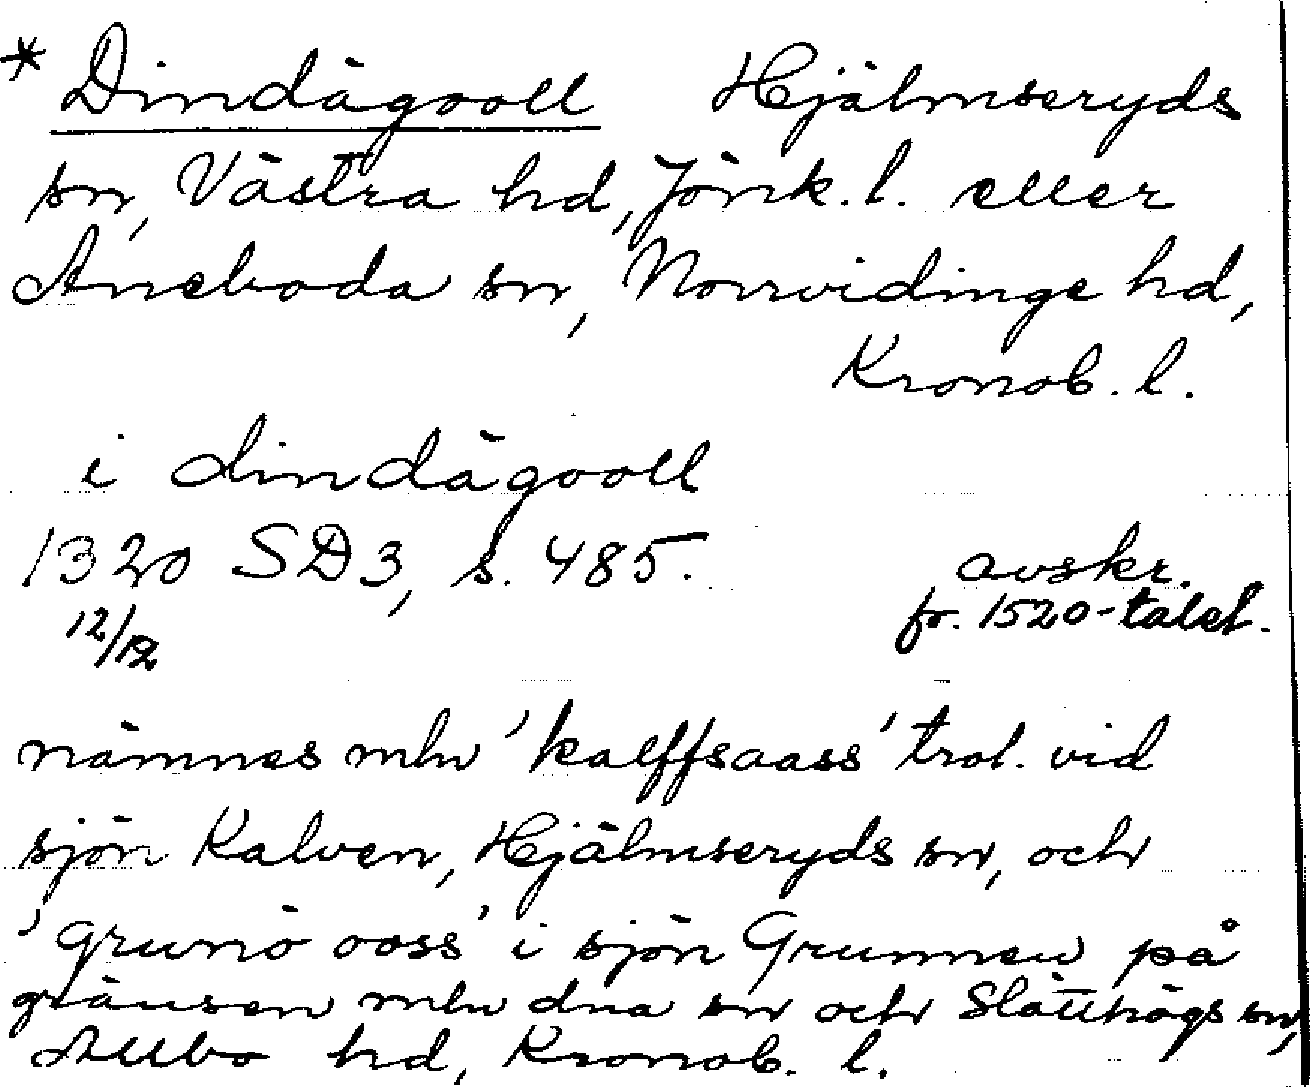 * Dindägooll Hjälmseryds
sn, Västra hd, Jönk. l. eller
Aneboda sn, Norrvidinge hd,
Kronob. l.
i dindägooll
1320 SD3, s. 485. avskr.
12/12 fr. 1520-talet.
nämnes mln 'kalffsaass' trol. vid
sjön Kalven, Hjälmseryds sn, och
'grunö ooss' i sjön Grunnen på
gränsen mln dna sn och Slätthögs sn,
Allbo hd, Kronob. l.